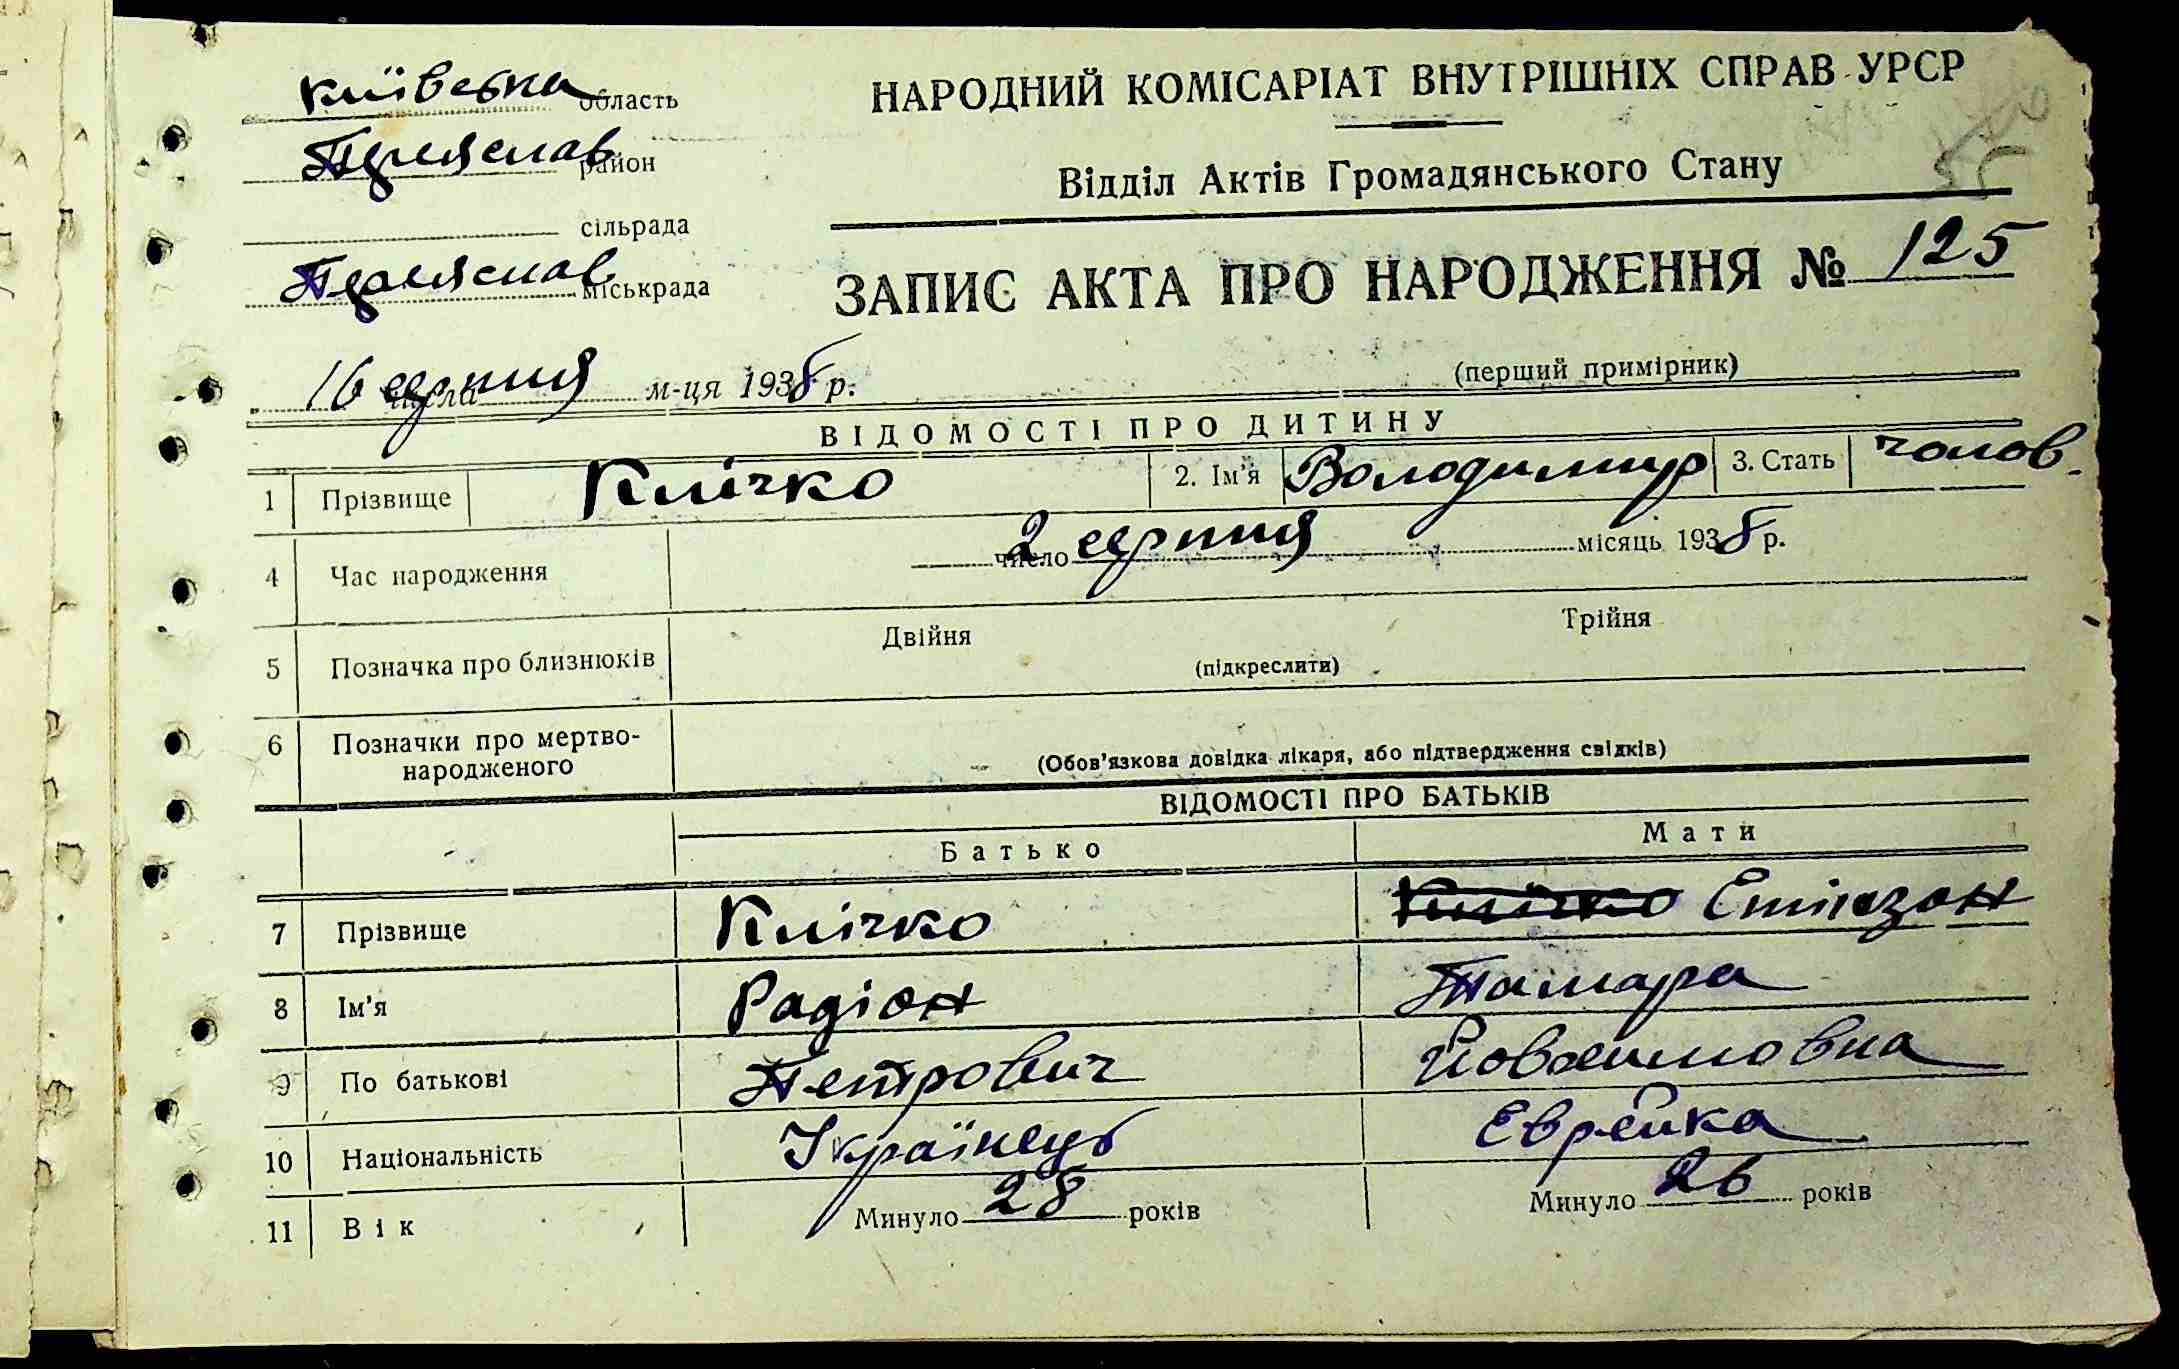 Київська область
НАРОДНИЙ КОМІСАРІАТ ВНУТРІШНІХ СПРАВ УРСР
Переяслав район
Відділ Актів Громадянського Стану
сільрада
Переяслав міськрада
ЗАПИС АКТА ПРО НАРОДЖЕННЯ № 125
16 числа серпня м-ця 1938 р.
(перший примірник)
ВІДОМОСТІ ПРО ДИТИНУ
1 Прізвище Клічко 2. Ім'я Володимир 3. Стать чолов.
4 Час народження 2 число серпня місяць 1938 р.
5 Позначка про близнюків Двійня Трійня
(підкреслити)
6 Позначки про мертво-
народженого
(Обов'язкова довідка лікаря, або підтвердження свідків)
ВІДОМОСТІ ПРО БАТЬКІВ
Батько Мати
7 Прізвище Клічко Клічко
8 Ім'я Радіон Тамара
9 По батькові Петрович
10 Національність Українець Еврейка
11 Вік Минуло 28 років Минуло 26 років